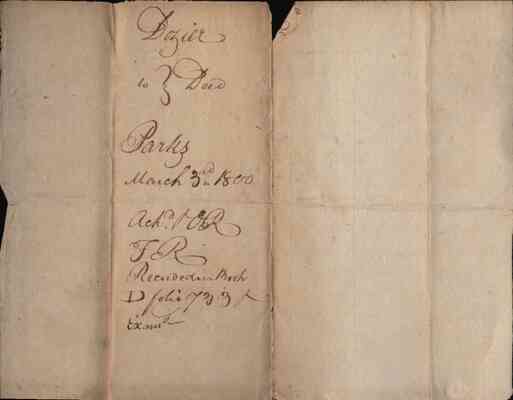 Dozier
to } Deed
Parks
March 3rd 1800
Ackd & OR
T R
Recorded in Book
D folio 733 &
Examd